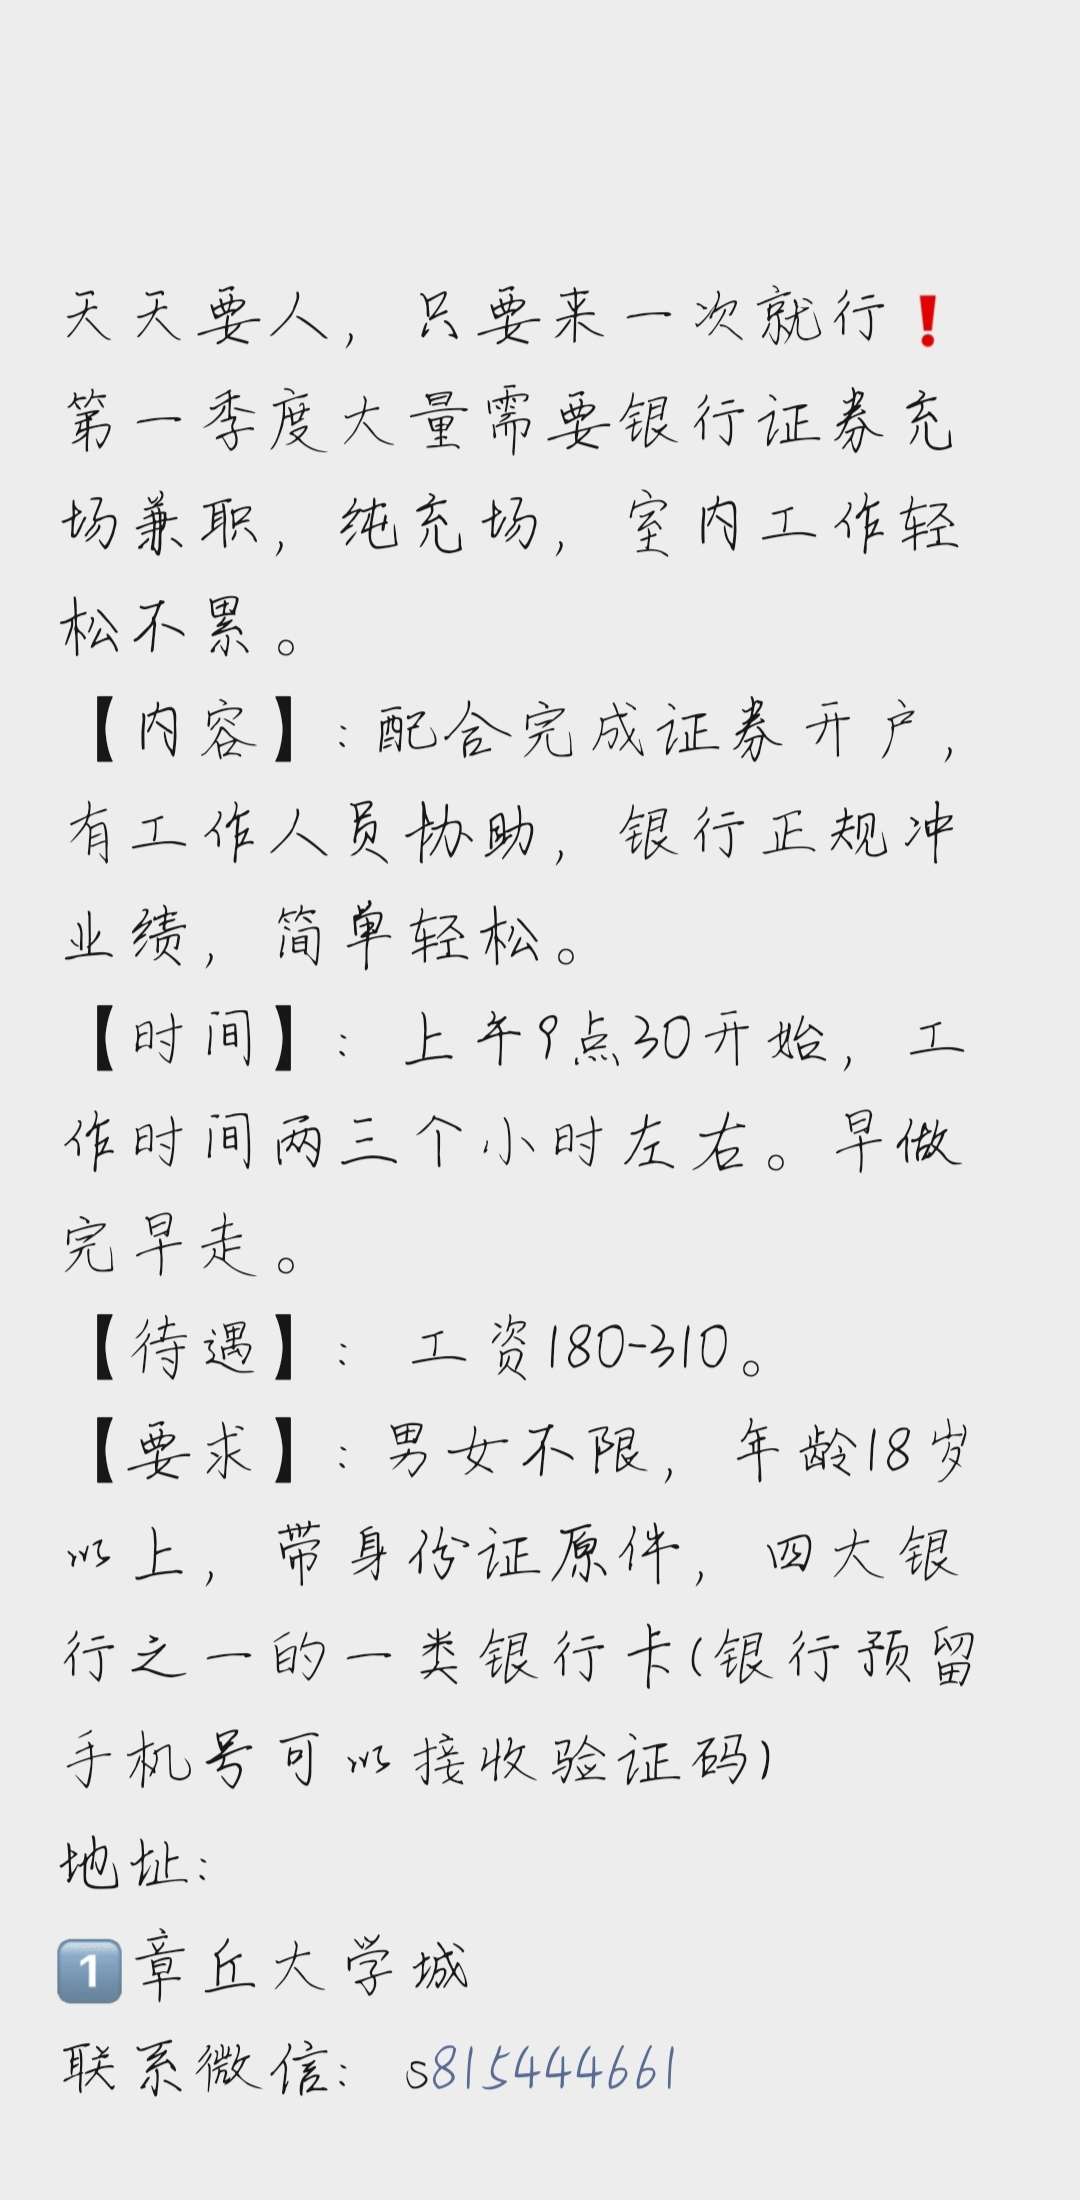 天天要人，只要来一次就行❗
第一季度大量需要银行证券充
场兼职，纯充场，室内工作轻
松不累。
【内容】：配合完成证券开户，
有工作人员协助，银行正规冲
业绩，简单轻松。
【时间】：上午9点30开始，工
作时间两三个小时左右。早做
完早走。
【待遇】：工资180-310。
【要求】：男女不限，年龄18岁
以上，带身份证原件，四大银
行之一的一类银行卡(银行预留
手机号可以接收验证码)
地址：
1️⃣章丘大学城
联系微信：s815444661